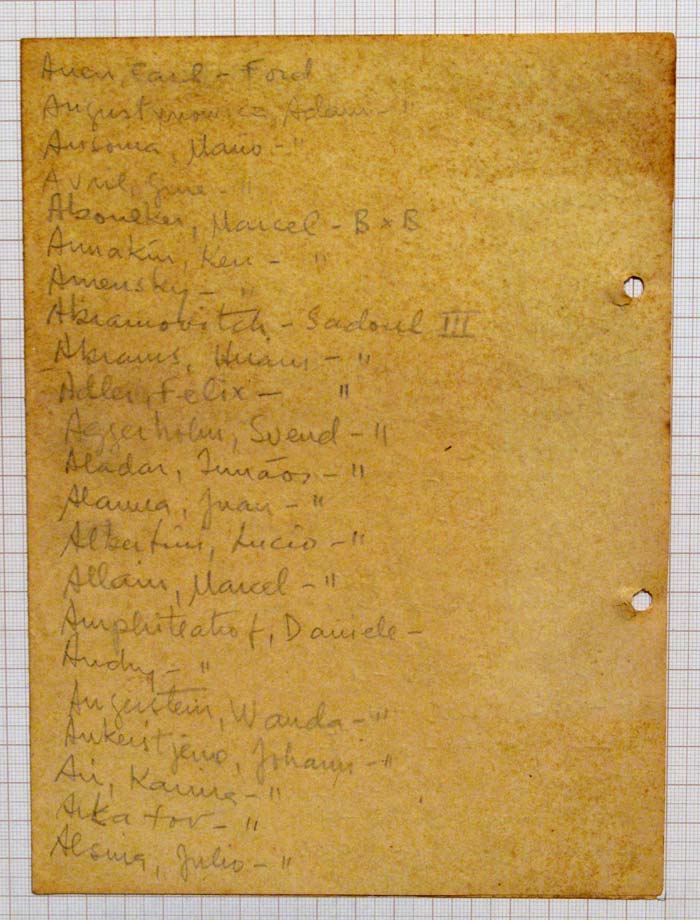 Auen, Carl - Ford
Augustynowicz, Adam - "
Ausonia, Mario - "
Avril, Jane - "
Aboulker, Marcel - B × B
Annakin, Ken - "
Amensky - "
Abramovitch - Sadoul III
Abrams, Hiram - "
Adler, Felix - "
Aggerholm, Svend - "
Aladar, - "
Alarma, Juan - "
Albertini, Lucio - "
Allain, Marcel - "
Amphiteatrof, Daniele -
Andry - "
Angerstein, Wanda - "
Ankerstjerno, Johann - "
Ari, Karina - "
Arkatov - "
Alsina, Julio - "